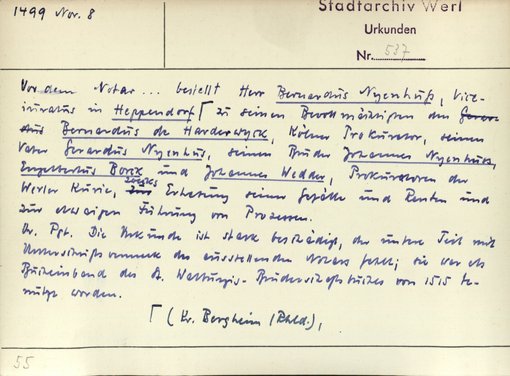 1499 Nov. 8
Stadtarchiv Werl
Urkunden
Nr. 537
Vor dem Notar ... bestellt Herr Bernardus Nyenhuß, Vice-
curatus in Heppendorf ⌈ zu seinen Bevollmächtigten den
Bernardus de Harderwyck, Kölner Prokurator, seinen
Vater Gerardus Nyenhus, seinen Bruder Johannes Nyenhuss,
Engelbertus Borck und Johannes Wedder, Prokuratoren der
Werler Kurie, zwecks Erhebung seiner Gefälle und Renten und
zur etwaigen Führung von Prozessen.
Or. Pgt. Die Urkunde ist stark beschädigt, der untere Teil mit
Unterschriftsvermerk des ausstellenden Notars fehlt; sie war als
Bucheinband des St. Walburgis-Bruderschaftsbuches von 1515 be-
nutzt worden.
⌈ (Kr. Bergheim (Rhld.),
55